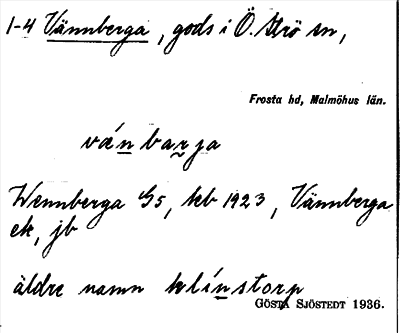 1-4 Vännberga, gods i Ö. Strö sn,
Frosta hd, Malmöhus län.
vánbarja
Wennberga G5, kb 1923, Vännberga
ek, jb
äldre namn klínstorp
GÖSTA SJÖSTEDT 1936.